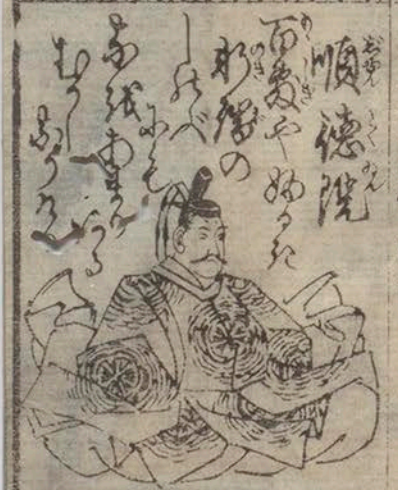 順徳院
百敷やふるき
軒端の
しのぶ
にも
なをあまり
ある
むかし
なりけり